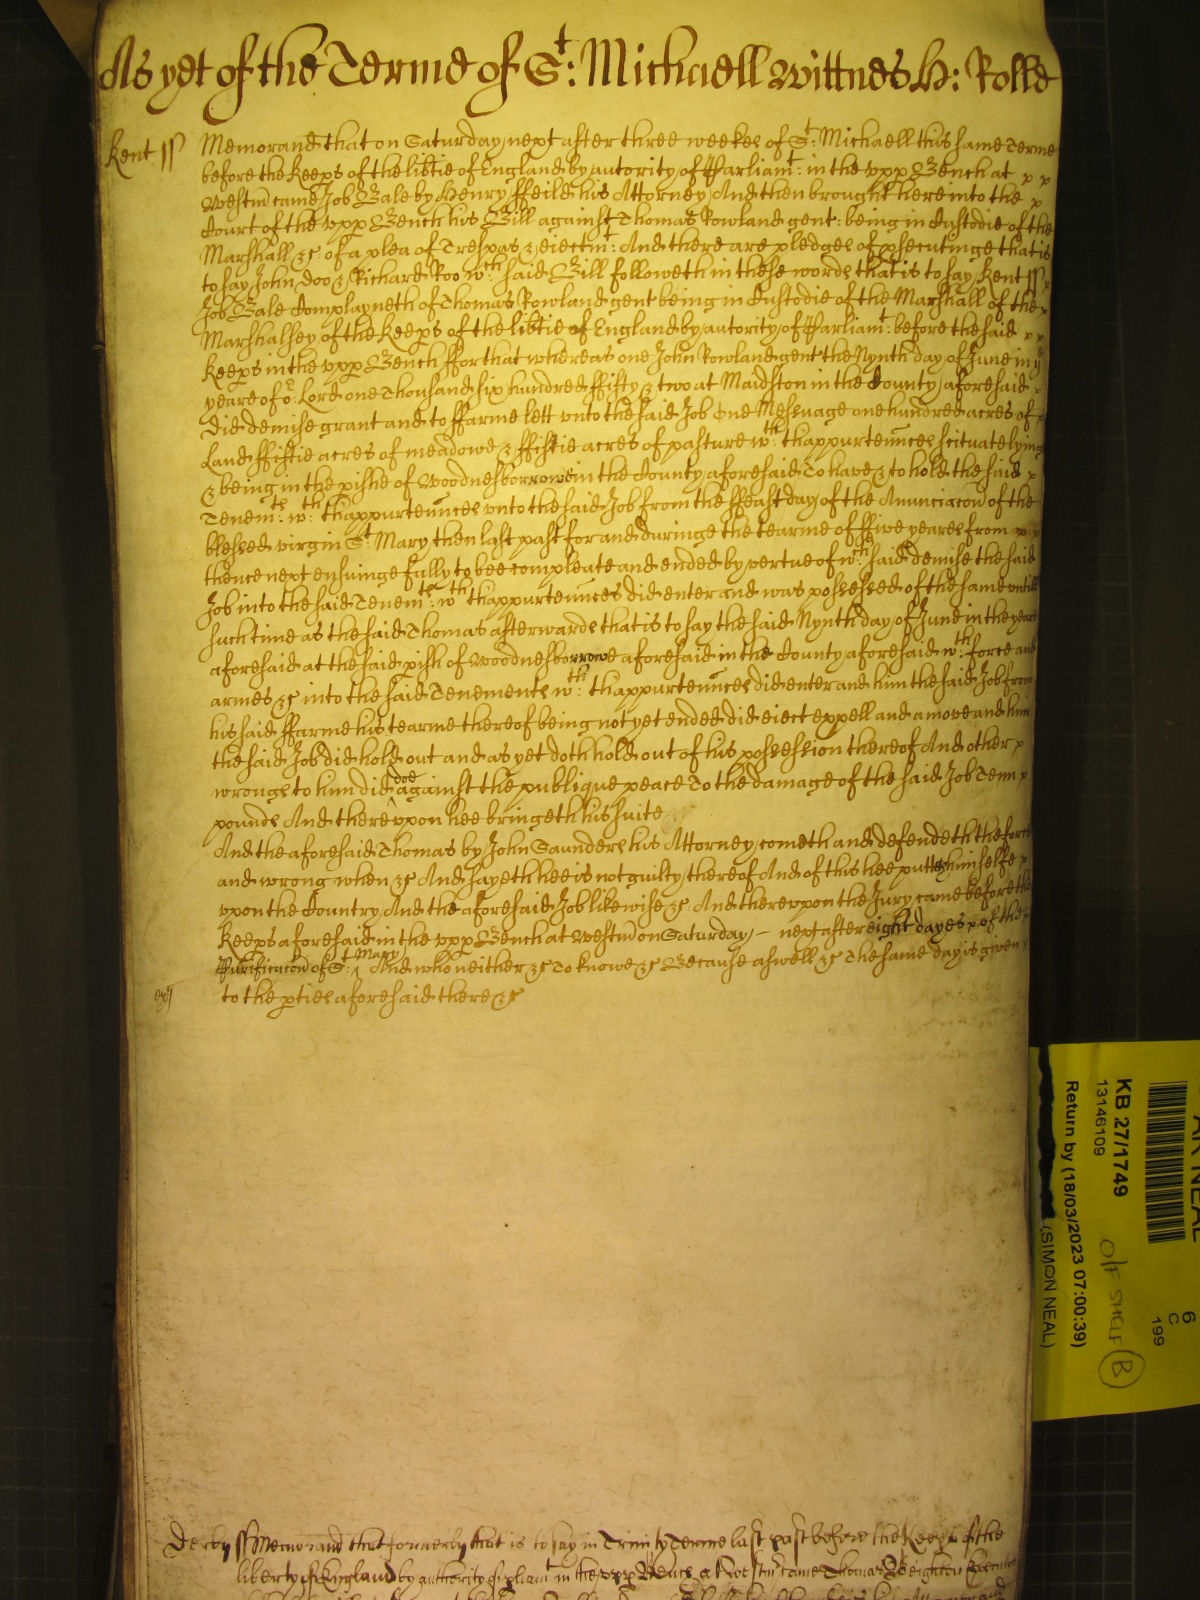 As yet of the Terme of St: Michaell Wittnes H: Rolle
Kent ss Memorand that on Saturday next after three weekes of St: Michaell this same Terme
before the Keeps of the libtie of England by autority of Parliamt: in the vpp Bench at x x
Westm came Job Bale by Henry ffeild his Attorney And then brought here into the x
Court of the vpp Bench his Bill against Thomas Rowland gent: being in Custodie of the
Marshall &c of a plea of Trespas & eiectmt: And there are pledges of psecutinge that is
to say John Doo & Richard Roo wch: said Bill followeth in these words that is to say Kent ss
Job Bale Complayneth of Thomas Rowland gent being in Custodie of the Marshall of the
Marshalsey of the Keeps of the libtie of England by autority of Parliamt: before the said x x
Keeps in the vpp Bench ffor that whereas one John Rowland gent the Nynth day of June in ye
yeare of or: Lord one Thousand six hundred ffifty & two at Maidston in the County aforesaid x
did demise grant and to ffarme lett vnto the said Job one Messuage one hundred acres of x
Land ffiftie acres of meadowe & ffiftie acres of pasture wth: thappurtennces scituate lying
& being in the pishe of Woodnesborrowe in the County aforesaid To have & to hold the said x
Tenemts: wth: thappurtennces vnto the said Job from the ffeast day of the Anunciacon of the
blessed virgin St: Mary then last past for and duringe the tearme of ffive yeares from x x
thence next ensuinge fully to bee compleate and ended by vertue of wch: said demise the said
Job into the said Tenemts: wth thappurtennces did enter and was possessed of the same vntill
such time as the said Thomas afterwards that is to say the said Nynth day of June in the yeare
aforesaid at the said pish of Woodnesborrowe aforesaid in the County aforesaid wth: force and
armes &c into the said Tenements wth: thappurtennces did enter and him the said Job from
his said ffarme his tearme thereof being not yet ended did eiect expell and amove and him
the said Job did hold out and as yet doth hold out of his possession thereof And other x
wrongs to him did doe against the publique peace To the damage of the said Job Tenn x
pounds And therevpon hee bringeth his suite
And the aforesaid Thomas by John Saunders his Attorney cometh and defendeth the force
and wrong when &c And sayeth hee is not guilty thereof And of this hee putteth himselfe x
vpon the Country And the aforesaid Job likewise &c And therevpon the Jury came before the
Keeps aforesaid in the vpp Bench at Westm on Saturday – next after eight dayes x of the
Purificacon of St: Mary And who neither &c To knowe &c Because aswell &c The same day is given
to the pties aforesaid there &c
Derby ss Memorand that formerly that is to say in Trinity Terme last past before the Keeps of the
liberty of England by authority of pliamt in the vpp Bench at Westm came Thomas
KB 27/1749
13146109
Return by (18/03/2023 07:00:39)
(SIMON NEAL)
O/F SHELF B
6
C
199